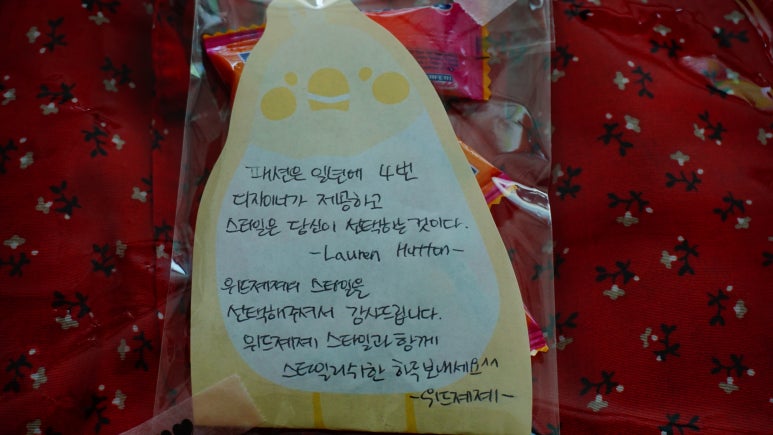 패션은 일년에 4번
디자이너가 제공하고
스타일은 당신이 선택하는 것이다.
-Lauren Hutton-
위드쩨쩨의 스타일을
선택해주셔서 감사드립니다.
위드쩨쩨 스타일과 함께
스타일리쉬한 하루보내세요^^
-위드쩨쩨-